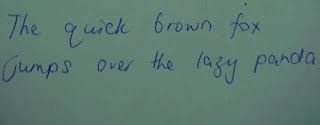 The quick brown fox
jumps over the lazy panda